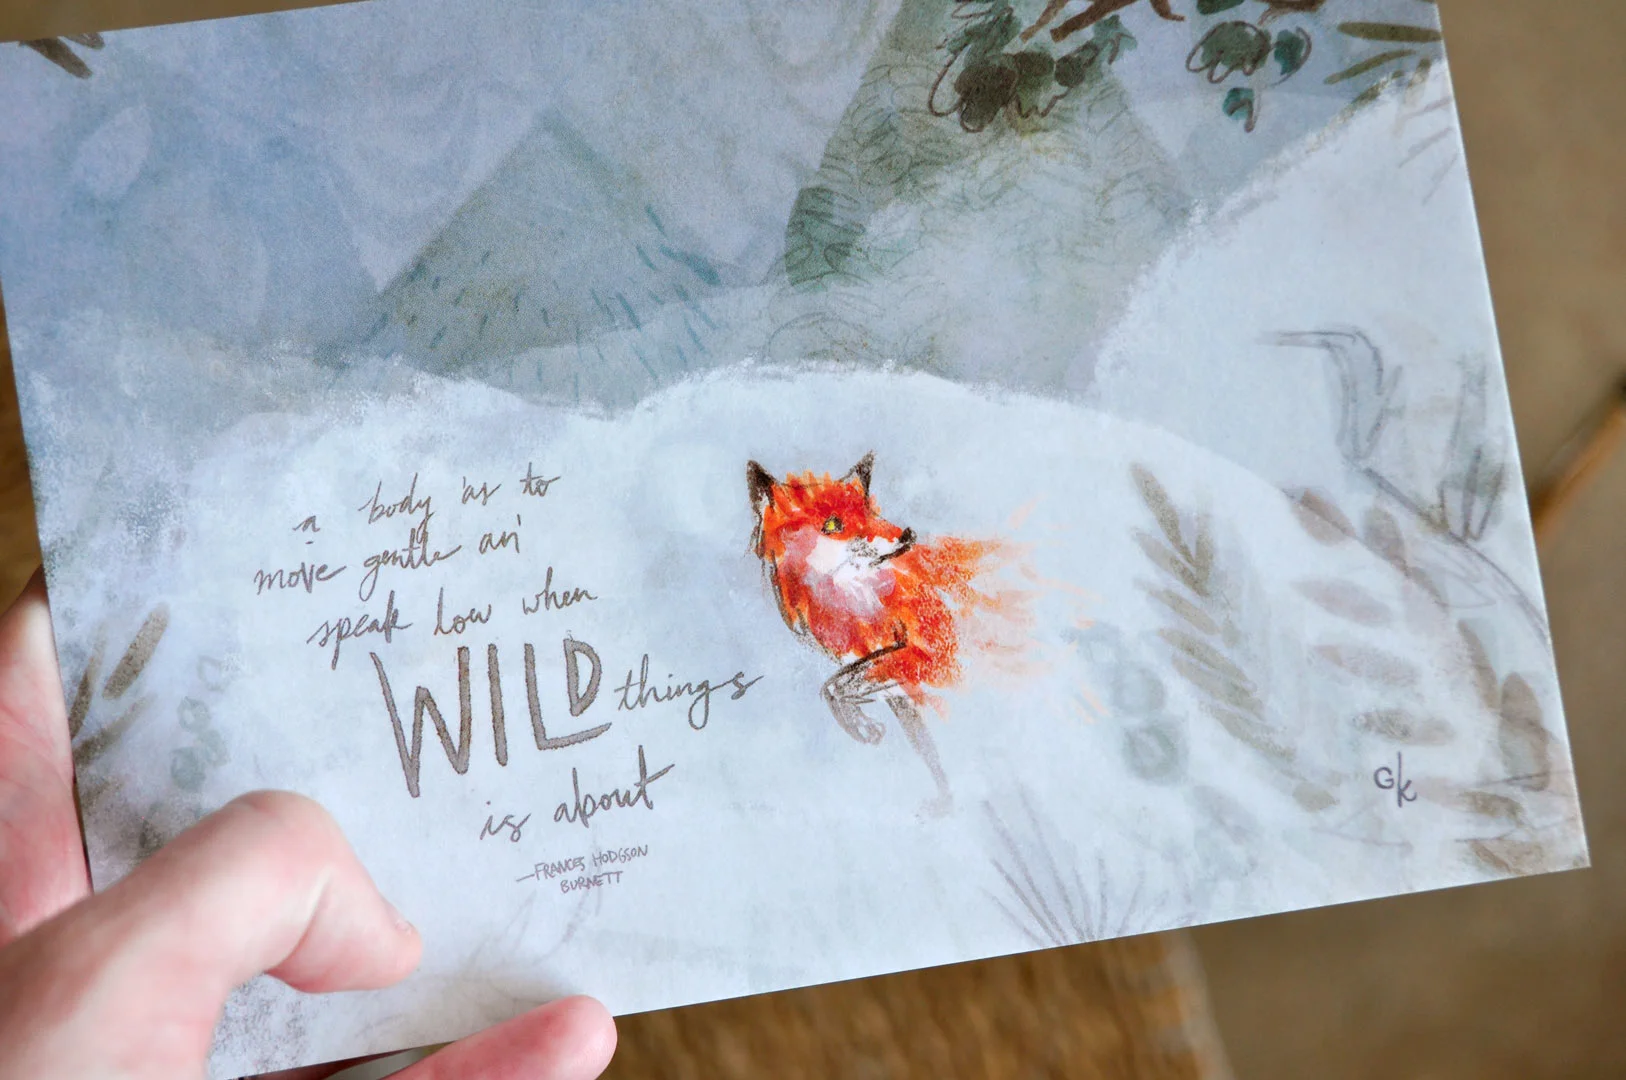 a body 'as to
move gentle an'
speak low when
WILD things
is about
—FRANCES HODGSON
BURNETT
GK